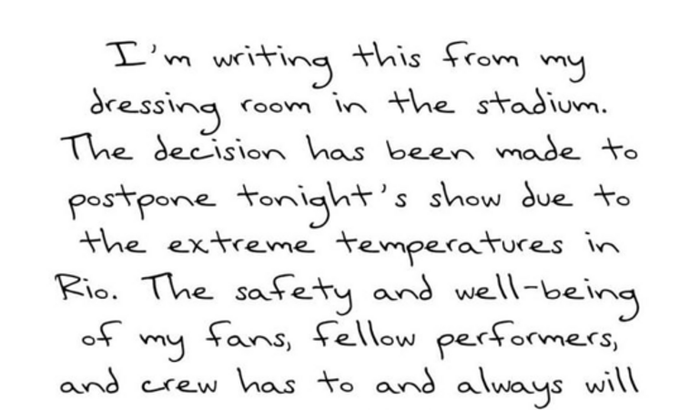 I'm writing this from my
dressing room in the stadium.
The decision has been made to
postpone tonight's show due to
the extreme temperatures in
Rio. The safety and well-being
of my fans, fellow performers,
and crew has to and always will